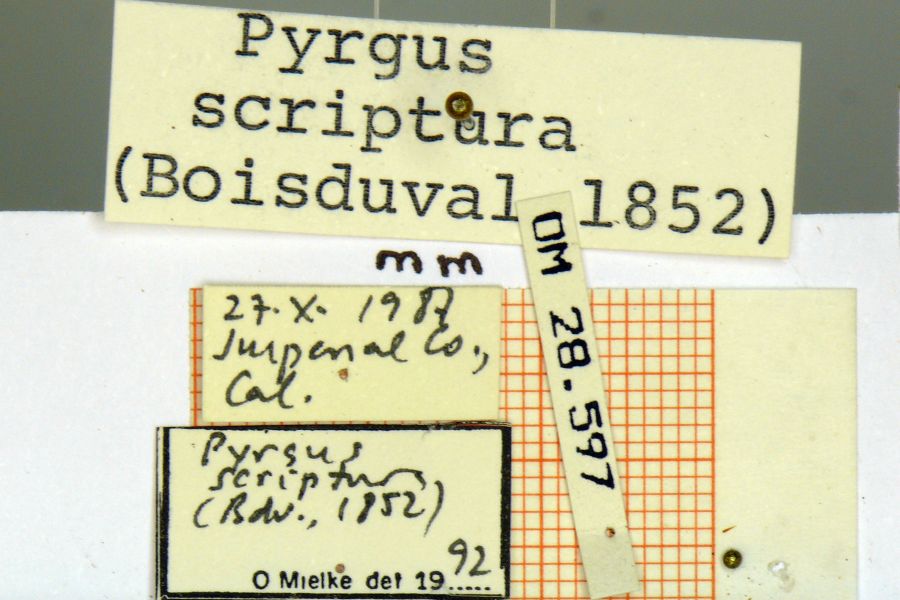 Pyrgus
scriptura
(Boisduval, 1852)
mm
OM 28.597
27.X. 1987
Imperial Co.,
Cal.
Pyrgus
scriptura
(Bdv., 1852)
O Mielke det 1992